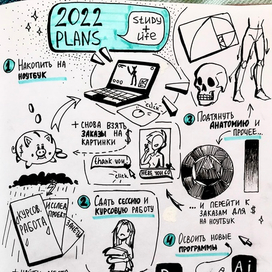 2022
PLANS
study
+
life
1 Накопить на
ноутбук
+ снова взять
заказы на
картинки
$
click
thank you
HERE YOU GO
3 Подтянуть
анатомию и
прочее...
... и перейти к
заказам для $
на ноутбук
2 Сдать сессию и
курсовую работу
КУРСОВ.
РАБОТА
ЗАЧЁТЫ
4 Освоить новые
программы
Ai